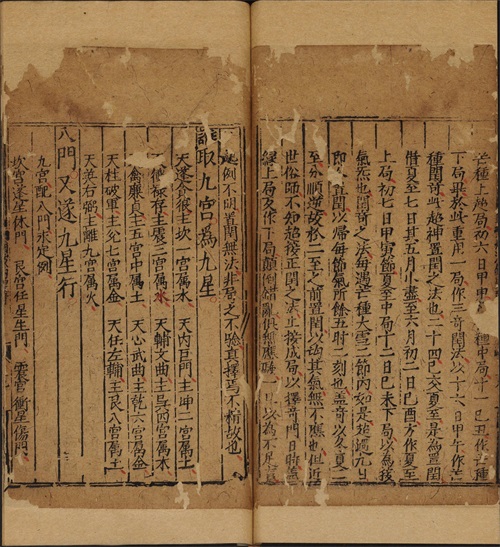 芒種上越局初六日甲申
下局畢然此重用一局作三奇閏法以十六日甲午作芒
種閏奇此超神置閏之法也二十四巳交夏至是為置閏
借夏至七日其五月小盡至六月初二日巳酉方作夏至
上局初七日甲寅節夏至中局十二日巳未下局以為接
氣然也閏奇之法每遇芒種大雪二節內如是超過九日
即置閏以歸每節氣所餘五時二刻也蓋奇以冬夏二
至分順逆故於二至之前置閏以均其氣無不應也但近
世俗師不知超接正閏之法止按成局以擇奇門日時
上局反作下局顛倒錯亂俱無應驗
起例不明置閏無法非奇之不驗真擇焉不精故也
取九宮為九星
天蓬貪狼主坎一宮屬水 天內巨門主坤二宮屬土
祿存主震三宮屬木 天輔文曲主巽四宮屬木
禽廉貞主五宮中屬土 天心武曲主乾六宮屬金
天柱破軍主兌七宮屬金 天任左輔主艮八宮屬土
天英右弼主離九宮屬火
八門又遂九星行
九宮配八門永定例
坎宮蓬星休門 艮宮任星生門 震宮衝星傷門